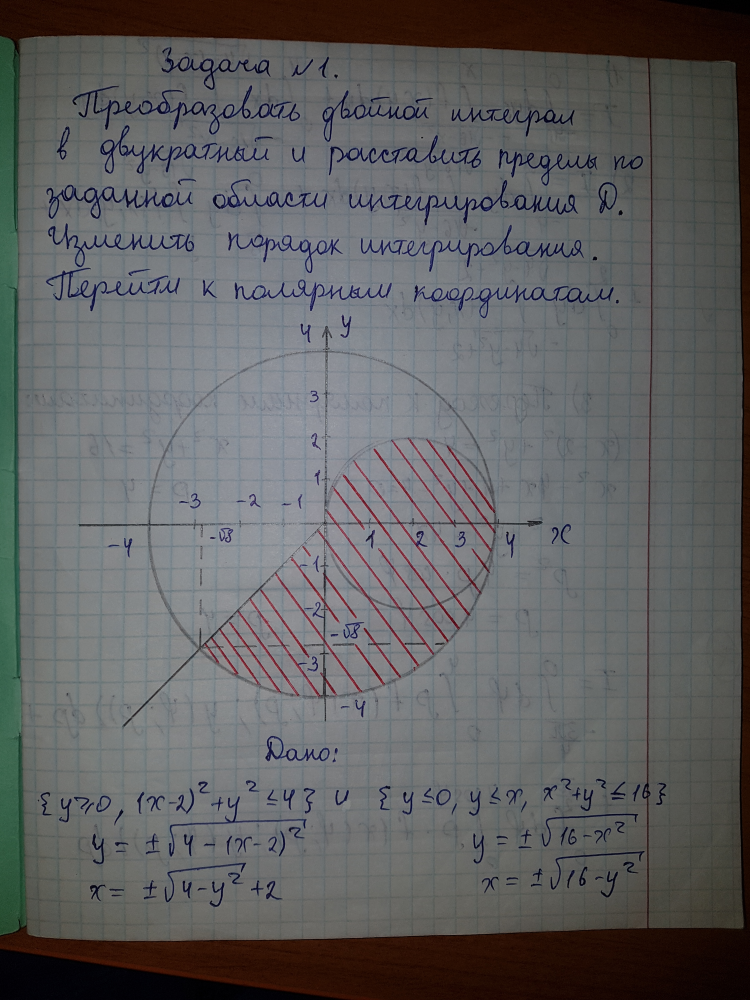 Задача №1.
Преобразовать двойной интеграл
в двукратный и расставить пределы по
заданной области интегрирования D.
Изменить порядок интегрирования.
Перейти к полярным координатам.
4 y
3
2
1
-3 -2 -1
-4 -√8 1 2 3 4 x
-1
-2
-√8
-3
-4
Дано:
{y≥0, (x-2)²+y²≤4} ∪ {y≤0, y≤x, x²+y²≤16}
y = ±√4-(x-2)² y = ±√16-x²
x = ±√4-y² +2 x = ±√16-y²